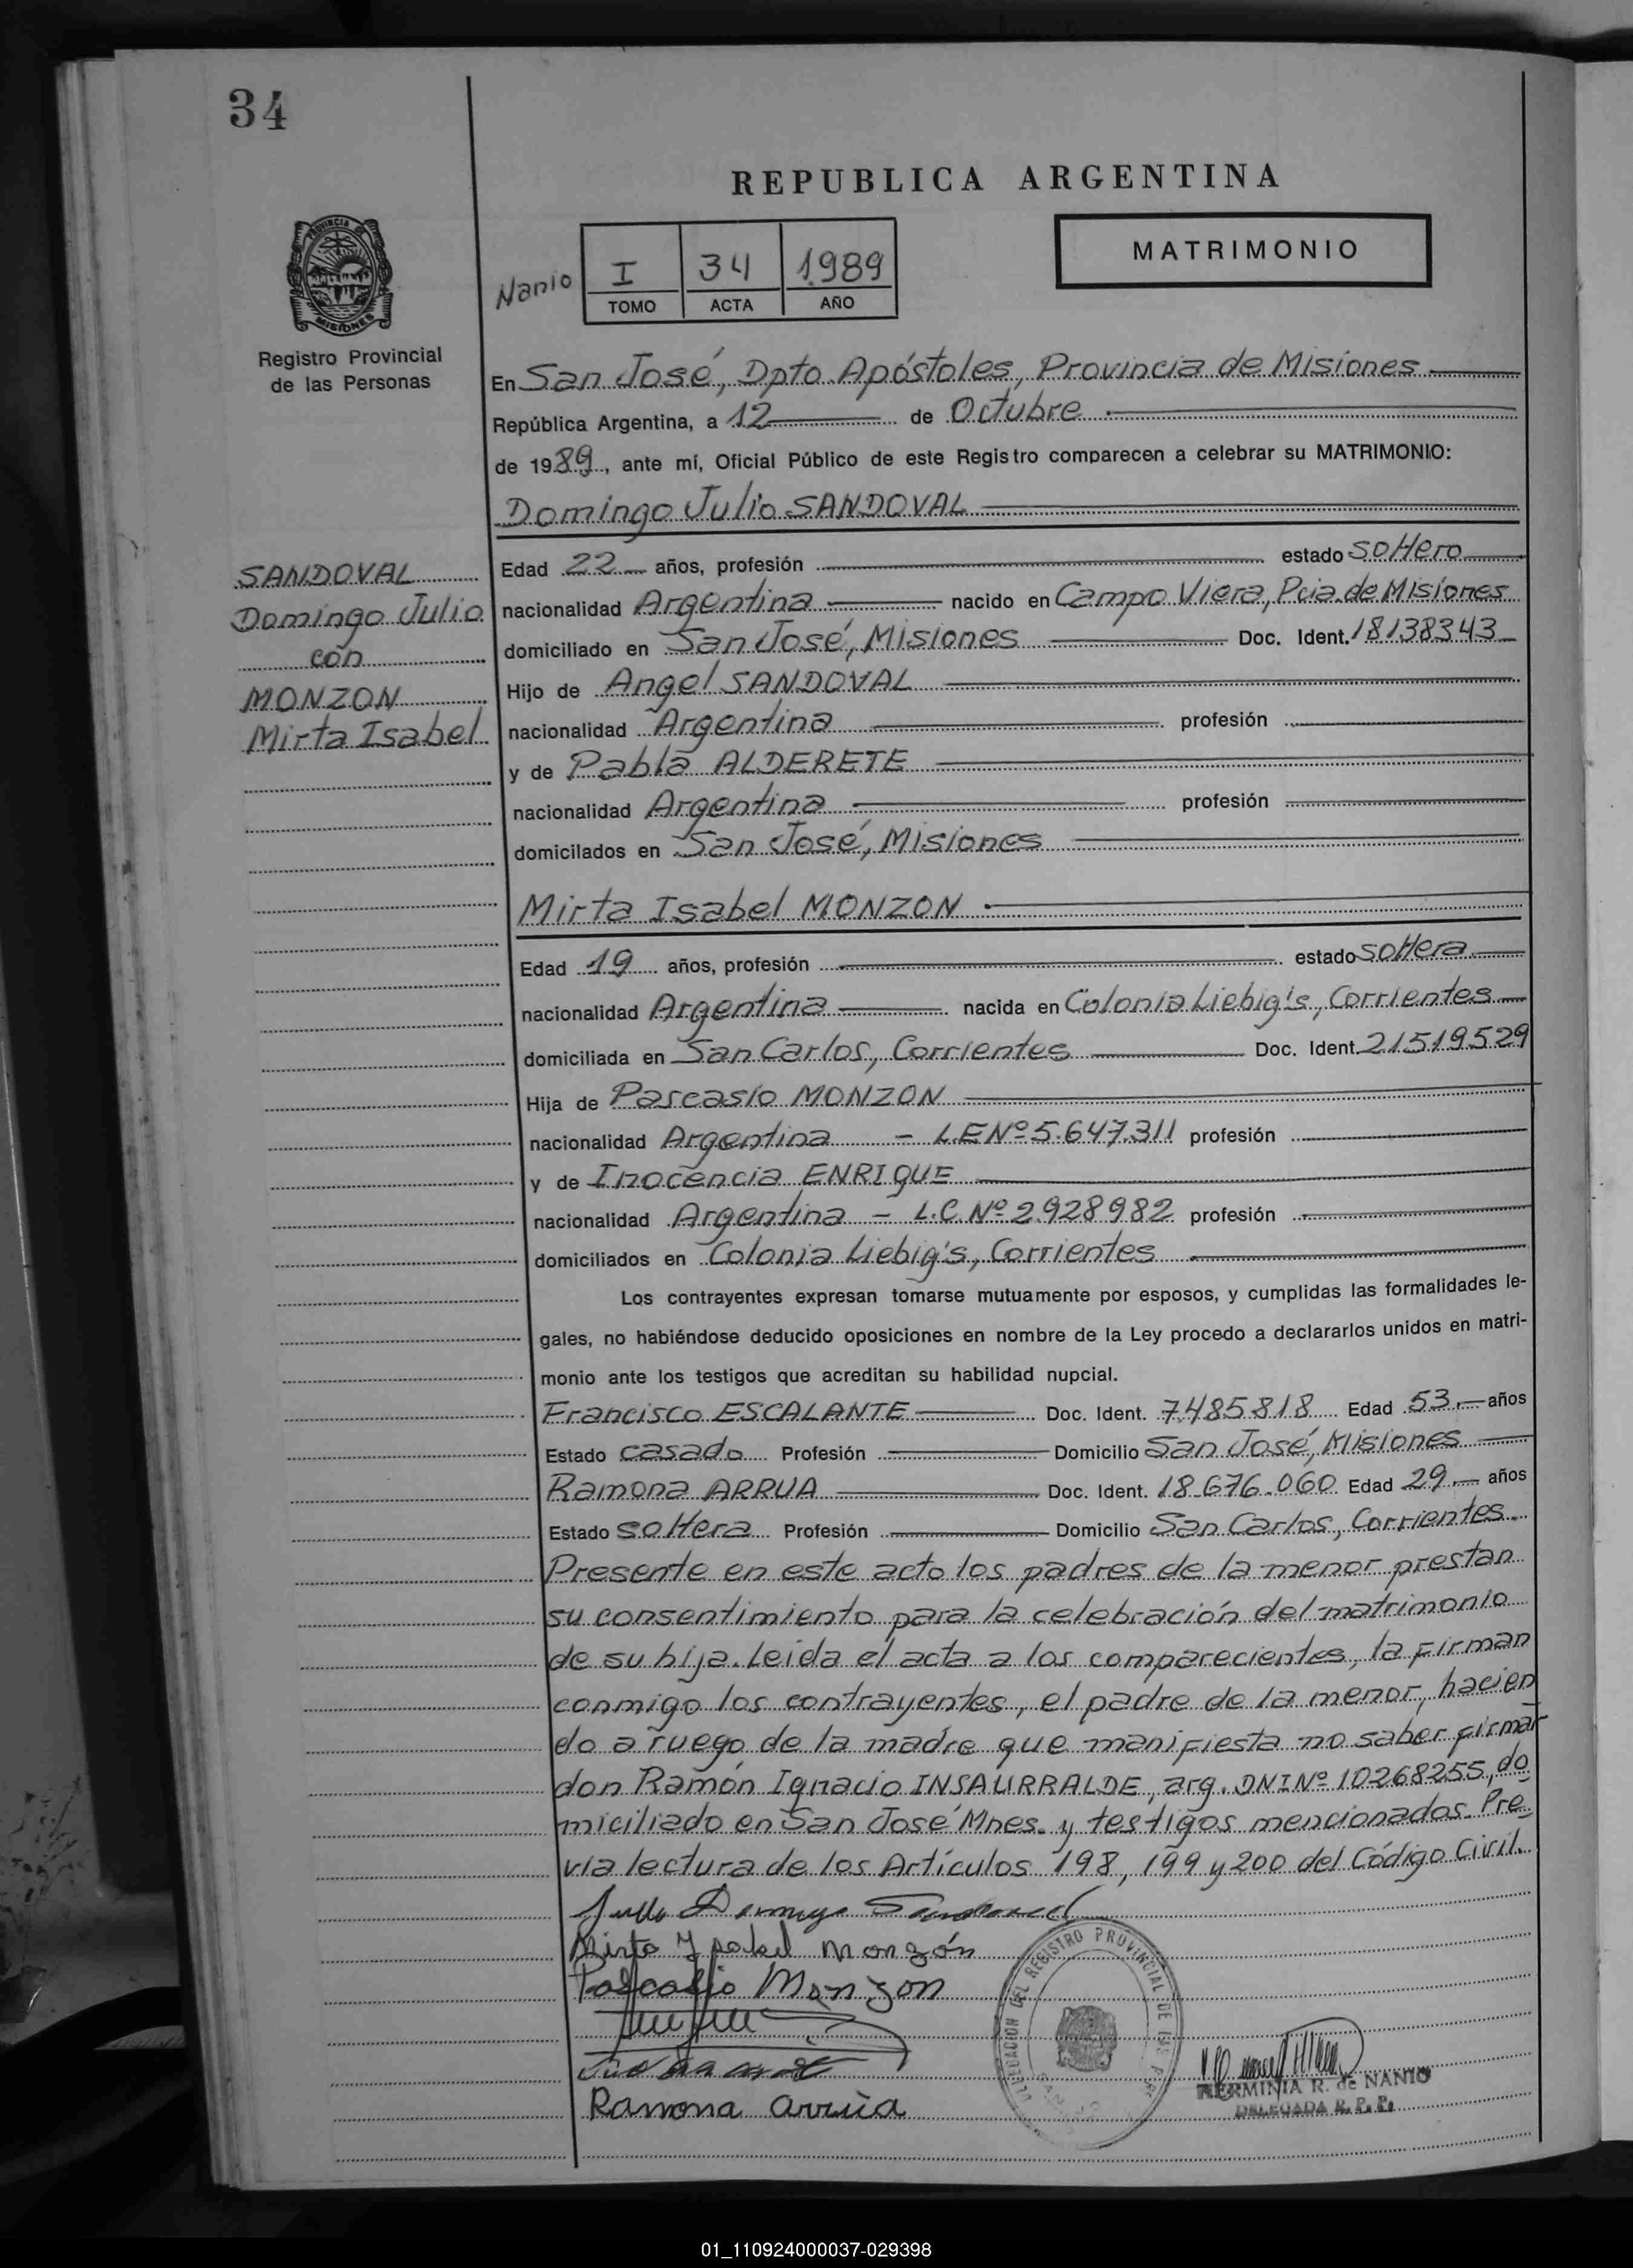 34
REPUBLICA ARGENTINA
MATRIMONIO
PROVINCIA DE
MISIONES
Nanio
I 34 1989
TOMO ACTA AÑO
Registro Provincial
de las Personas
En San José, Dpto. Apóstoles, Provincia de Misiones
República Argentina, a 12 de Octubre
de 1989, ante mí, Oficial Público de este Registro comparecen a celebrar su MATRIMONIO:
Domingo Julio SANDOVAL
SANDOVAL
Domingo Julio
con
MONZON
Mirta Isabel
Edad 22 años, profesión estado soltero
nacionalidad Argentina nacido en Campo Viera, Pcia. de Misiones
domiciliado en San José, Misiones Doc. Ident. 18138343
Hijo de Angel SANDOVAL
nacionalidad Argentina profesión
y de Pabla ALDERETE
nacionalidad Argentina profesión
domicilados en San José, Misiones
Mirta Isabel MONZON
Edad 19 años, profesión estado soltera
nacionalidad Argentina nacida en Colonia Liebig's, Corrientes
domiciliada en San Carlos, Corrientes Doc. Ident. 21519529
Hija de Pascasio MONZON
nacionalidad Argentina - L.E Nº 5.647.311 profesión
y de Inocencia ENRIQUE
nacionalidad Argentina - L.C. Nº 2.928982 profesión
domiciliados en Colonia Liebig's, Corrientes
Los contrayentes expresan tomarse mutuamente por esposos, y cumplidas las formalidades le-
gales, no habiéndose deducido oposiciones en nombre de la Ley procedo a declararlos unidos en matri-
monio ante los testigos que acreditan su habilidad nupcial.
Francisco ESCALANTE Doc. Ident. 7.485.818 Edad 53.- años
Estado casado Profesión Domicilio San José, Misiones
Ramona ARRUA Doc. Ident. 18.676.060 Edad 29.- años
Estado soltera Profesión Domicilio San Carlos, Corrientes.
Presente en este acto los padres de la menor prestan
su consentimiento para la celebración del matrimonio
de su hija. Leída el acta a los comparecientes, la firman
conmigo los contrayentes, el padre de la menor, hacien
do a ruego de la madre que manifiesta no saber firmar
don Ramón Ignacio INSAURRALDE, arg. DNI Nº 10268255, do
miciliado en San José Mnes. y testigos mencionados. Pre
via lectura de los Artículos 198, 199 y 200 del Código Civil.
Julio Domingo Sandoval
Mirta Ysabel Monzón
Pascasio Monzon
Ramona Arrúa
DELEGACION DEL REGISTRO PROVINCIAL DE LAS PER
HERMINIA R. de NANIO
DELEGADA R. P. P.
01_110924000037-029398